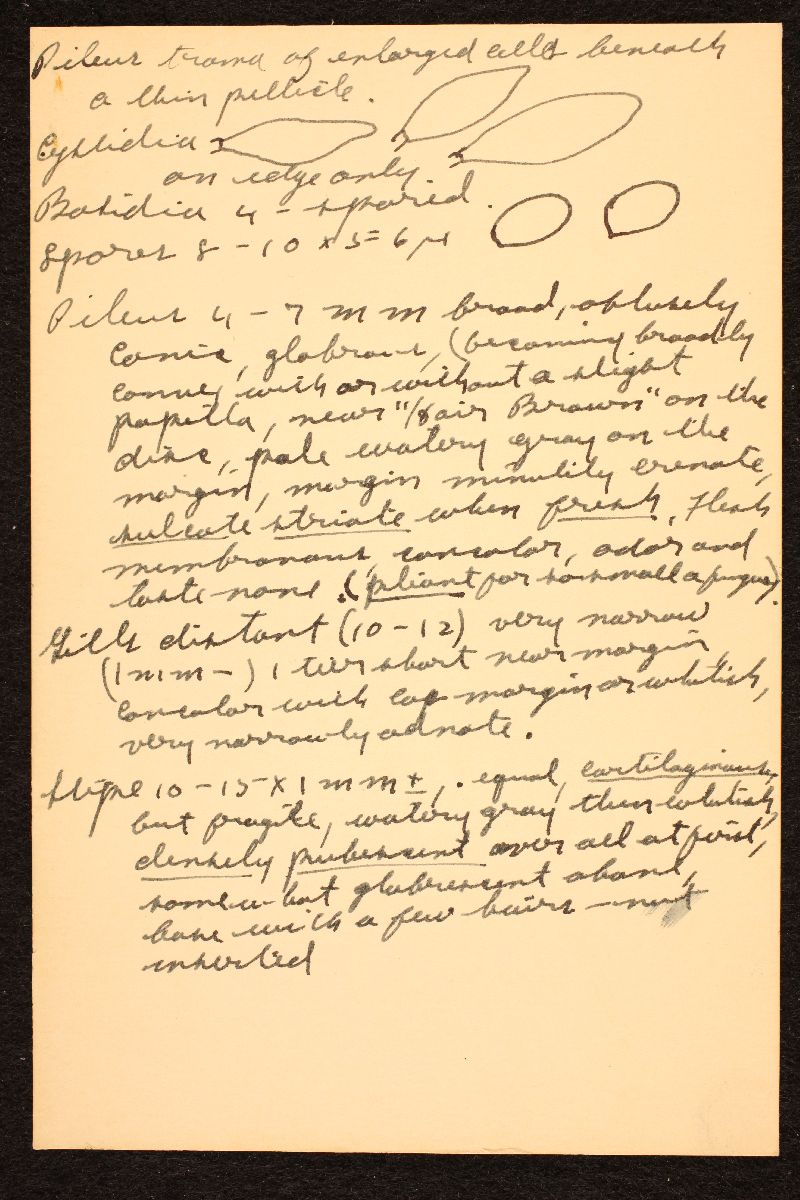 Pileus trama of enlarged cells beneath
a thin pellicle.
Cystidia
on edge only.
Basidia 4-spored.
Spores 8-10 x 5-6 μ
Pileus 4-7 mm broad, obtusely
conic, glabrous, (becoming broadly
convex with or without a slight
papilla, near "Hair Brown" on the
disc, pale watery gray on the
margin, margin minutely crenate,
sulcate striate when fresh, Flesh
membranous, concolor, odor and
taste none. (pliant for so small a fungus).
Gills distant (10-12) very narrow
(1 mm -) 1 tier short near margin,
concolor with cap margin or whitish,
very narrowly adnate.
Stipe 10-15 x 1 mm ±, . equal, cartilaginous,
but fragile, watery gray then whitish,
densely pubescent over all at first,
somewhat glabrescent above,
base with a few hairs - not
inserted